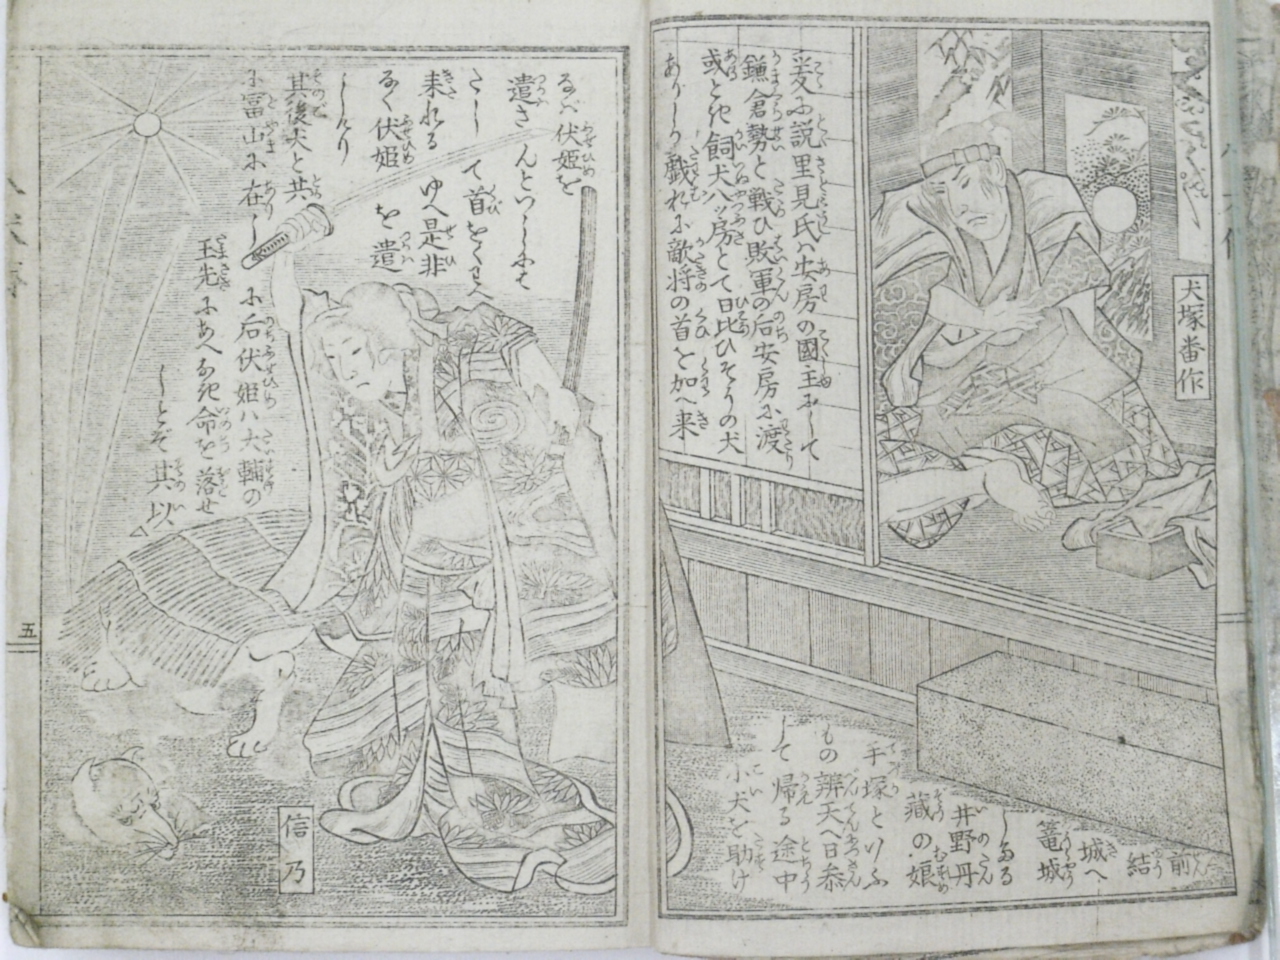 犬塚番作
爰に説里見氏ハ安房の國主にして
鎌倉勢と戦ひ敗軍の后安房に渡
或とき飼犬八ッ房とて日比ひぞうの犬
ありしが戯れに敵将の首を加へ来
らバ伏姫を
遣さんといひしにせ
たしして首をくわへ
来れるゆへ是非
なく伏姫を遣
しけり
其後犬と共
に冨山に在し
に后伏姫ハ大輔の
玉先にあへなき命を落せ
しとぞ其以
前
結
城へ
篭城
しける
井野丹
蔵の娘
手塚といふ
もの辨天へ日参
して帰る途中
小犬を助け
信乃
五